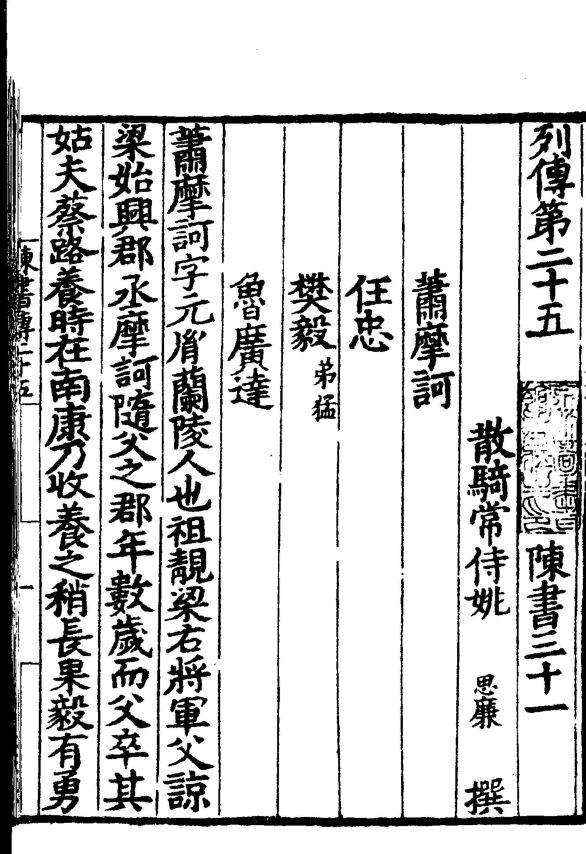 列傳第二十五 陳書三十一
散騎常侍姚 思廉 撰
蕭摩訶
任忠
樊毅 弟猛
魯廣達
蕭摩訶字元胤蘭陵人也祖靚梁右將軍父諒
梁始興郡丞摩訶隨父之郡年數歲而父卒其
姑夫蔡路養時在南康乃收養之稍長果毅有勇
陳書傳二十五